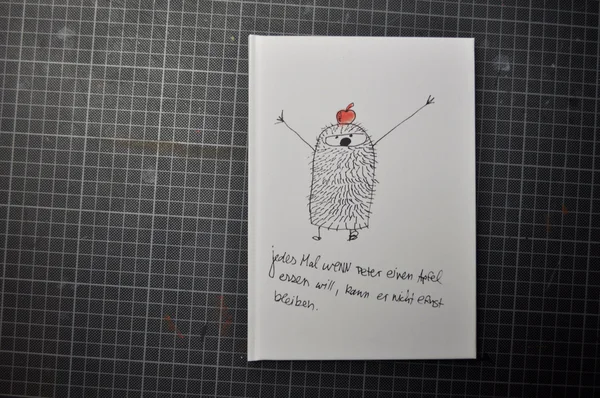 jedes Mal WENN Peter einen Apfel
essen will, kann er nicht ernst
bleiben.